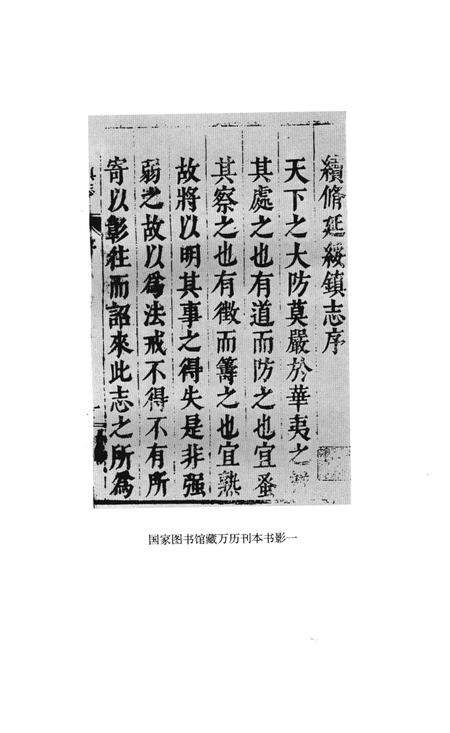 續脩延綏鎮志序
天下之大防莫嚴於華夷之
其處之也有道而防之也宜蚤
其察之也有徵而籌之也宜熟
故將以明其事之得失是非强
弱之故以爲法戒不得不有所
寄以彰往而詔來此志之所爲
国家图书馆藏万历刊本书影一